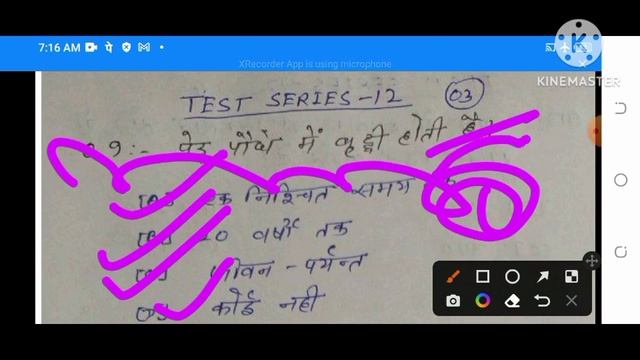 7:16 AM
XRecorder App is using microphone
KINEMASTER
TEST SERIES-12 03
9:- पेड़ पौधों में वृद्धी होती है।
निश्चित समय
वर्षों तक
जीवन-पर्यन्त
कोई नही